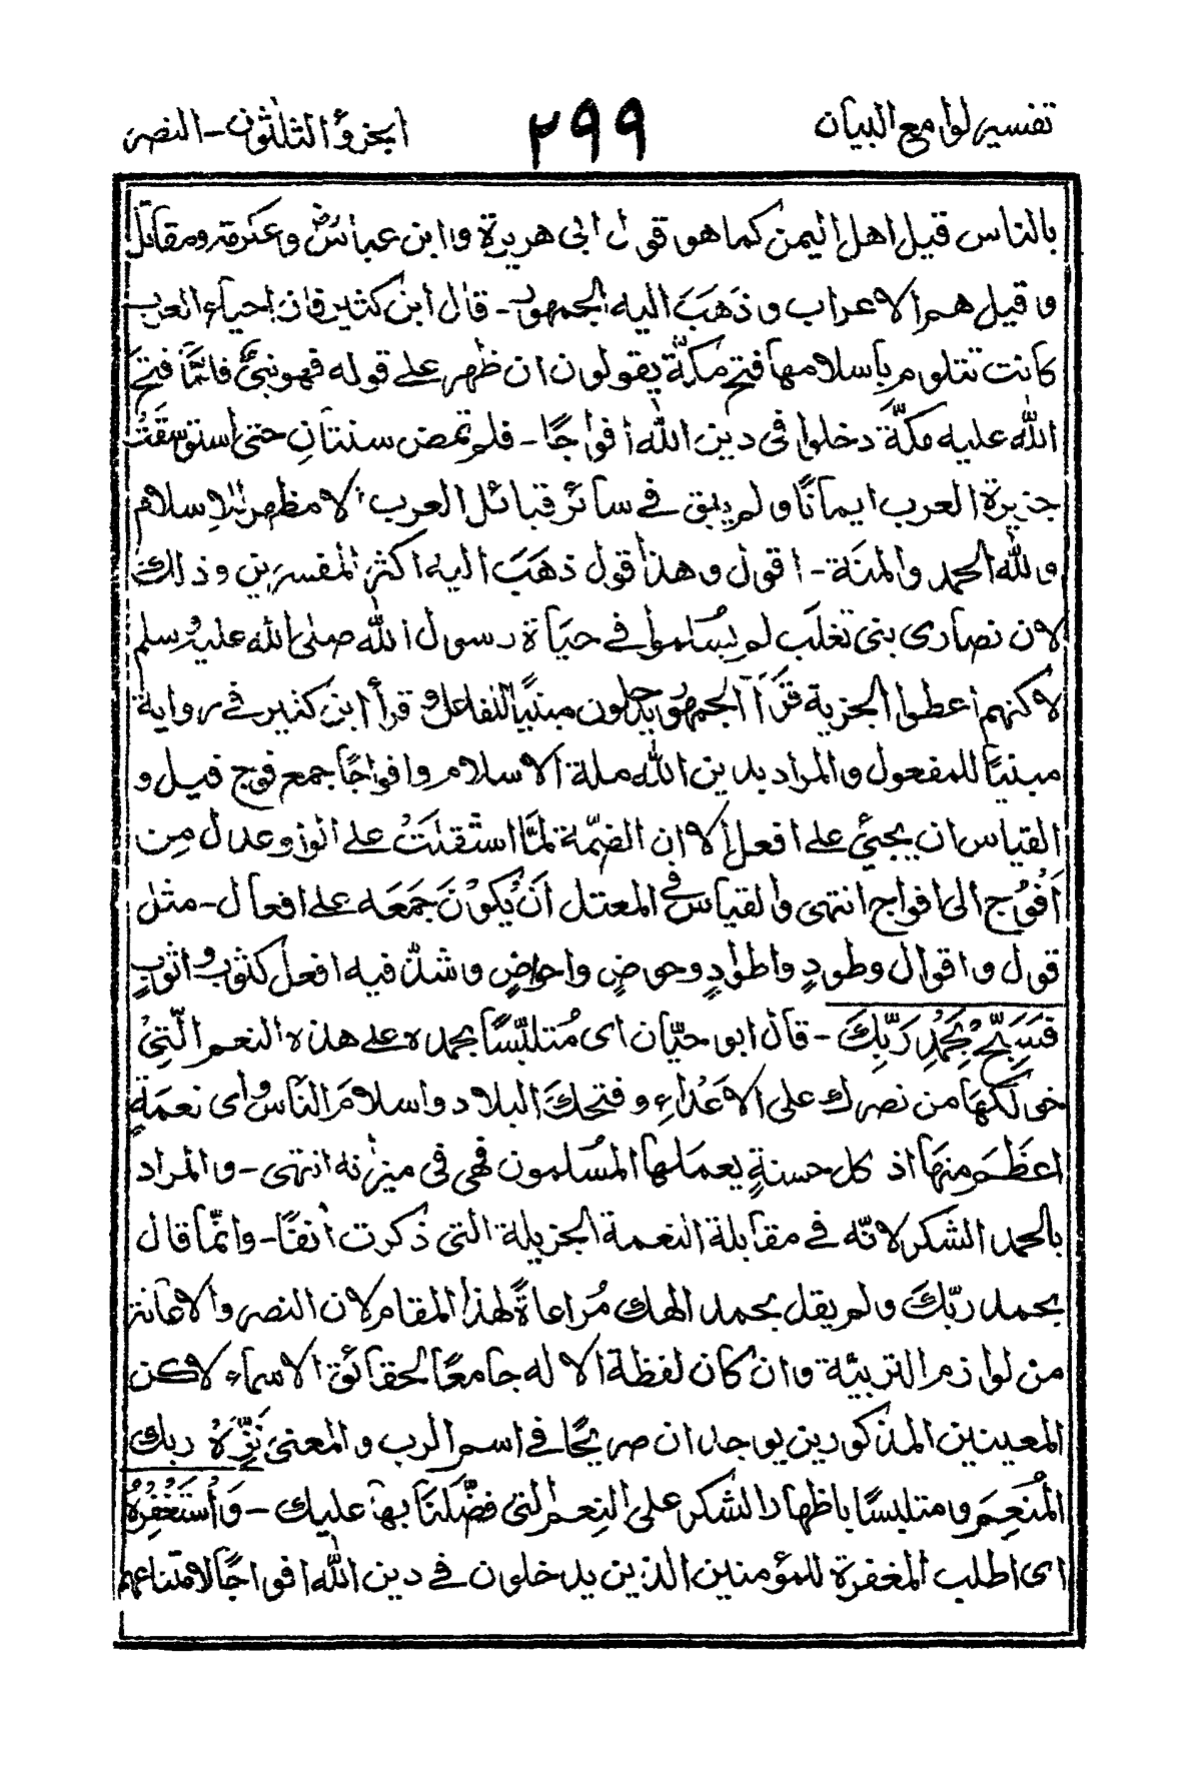 تفسير لوامع البيان ٢٩٩ الجزؤ الثلثون - النصر
بالناس قيل اهل اليمن كما هو قول ابى هريرة وابن عباسؓ وعكرمة ومقاتل
وقيل هم الاعراب وذَهَبَ اليه الجمهور - قال ابن كثير فان احياء العرب
كانت تتلوم باسلامها فتح مكّة يقولون ان ظهر على قوله فهو نبىٌّ فلمّا فتح
الله عليه مكّة دخلوا فى دين الله افواجًا - فلم تمض سنتانِ حتى استوسقَتْ
جزيرة العرب ايمانًا ولم يبق فى سائر قبائل العرب الا مظهر للاسلام
ولله الحمد والمنة - اقول وهذا قول ذهَبَ اليه اكثر المفسرين وذلك
لان نصارى بنى تغلَب لم يسلموا فى حياة رسول الله صلى الله عليه وسلم
لاكنهم اعطوا الجزية قرَأ الجمهور يدخلون مبنيًا للفاعل وقرأ ابن كثير فى رواية
مبنيًا للمفعول والمراد بدين الله ملة الاسلام وافواجًا جمع فوج قيل و
القياس ان يجيئ على افعل الا ان الضمّة لمّا استثقلَتْ على الواو عدل مِن
اَفْوُج الى افواج انتهى والقياس فى المعتل اَنْ يكوْنَ جَمَعَه على افعال - مثل
قول واقوال وطودٍ واطوادٍ وحوضٍ واحواضٍ وشذّ فيه افعل كثوب واثوبٍ
فَسَبِّحْ بِحَمْدِ رَبِّكَ - قال ابو حيّان اى مُتلبّسًا بحمده على هذه النعم الّتِىْ
خوّلكَهَا من نصرك على الاَعْداءِ وفتحك البلاد واسلامَ النّاسِ واى نعمَةٍ
اعظَم منهَا اذ كل حسنةٍ يعملها المُسلمون فهى فى ميزانه انتهى - والمراد
بالحمد الشكر لانّه فى مقابلة النعمة الجزيلة التى ذُكرت اٰنفًا - وانّما قال
بحمد ربّكَ ولم يقل بحمد الٰهك مُراعاةً لهذا المقام لان النصر والاعانة
من لوازم التربيّة وان كان لفظة الاله جامعًا لحقائق الاسماء لاكن
المعينين المذكورين يوجدان صريحًا فى اسم الرب والمعنى نَزِّهْ ربك
المُنعِمَ ومتلبسًا باظهار الشكر على النِعم التى فضّلنَا بها عليك - وَاسْتَغْفِرْهُ
اى اطلب المغفرة للمؤمنين الذين يدخلون فى دين الله افواجًا لامتناعهم